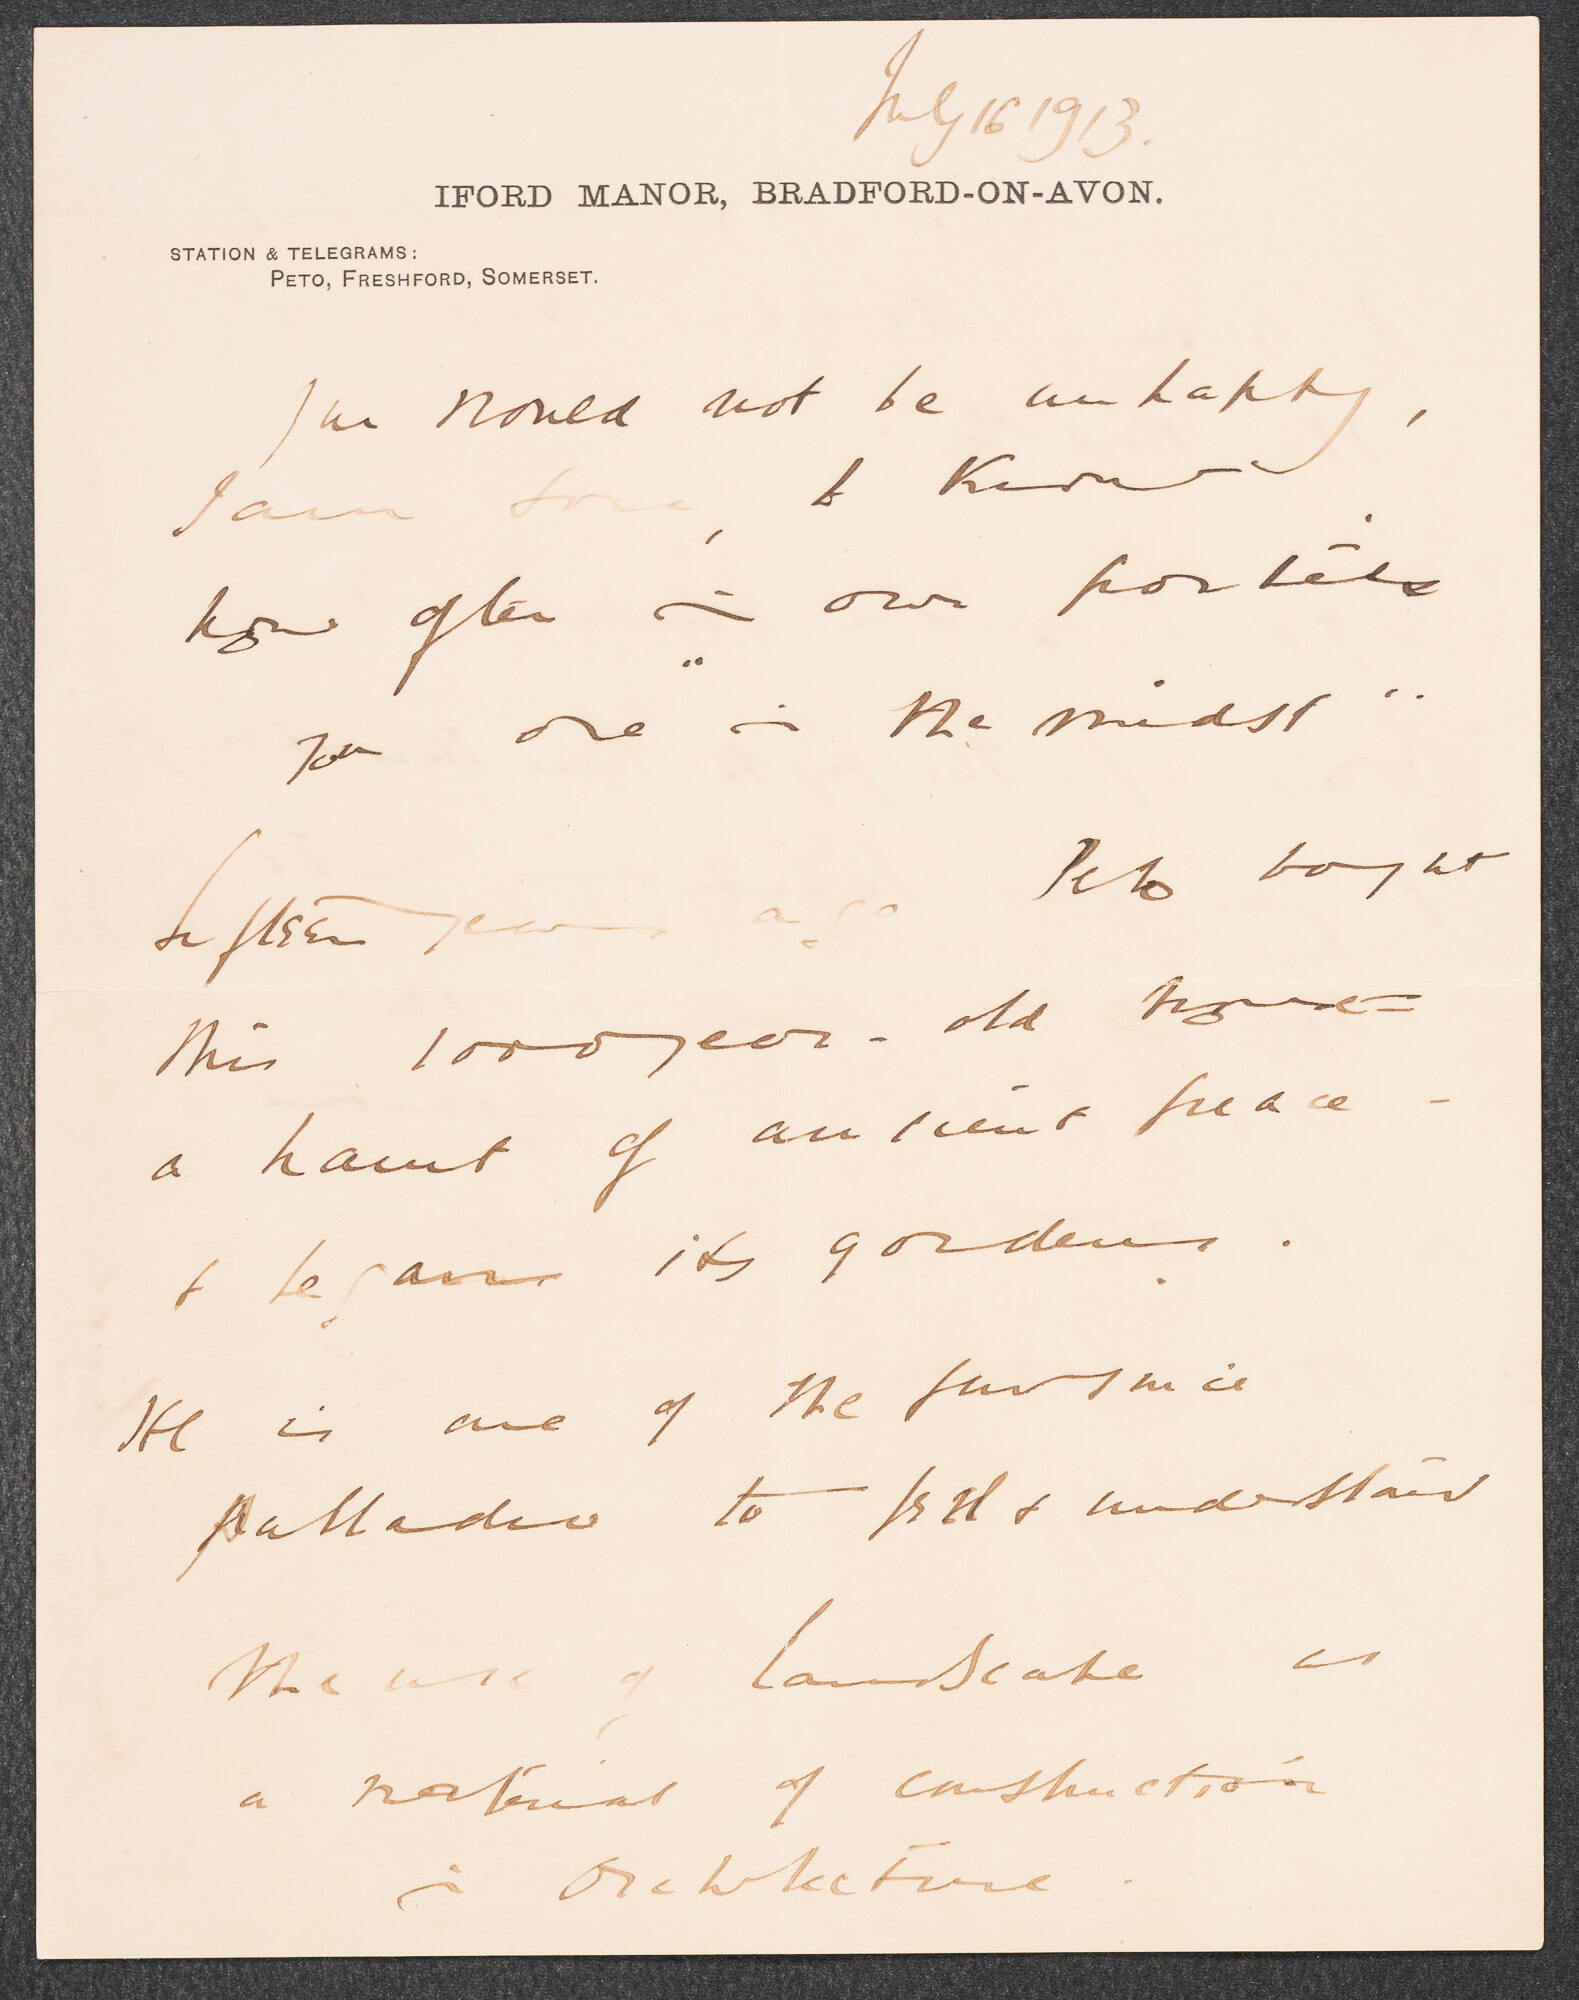 July 16 1913.
IFORD MANOR, BRADFORD-ON-AVON.
STATION & TELEGRAMS:
PETO, FRESHFORD, SOMERSET.
You would not be unhappy,
I am sure, to know
how often in our parties
you are "in the midst"
Fifteen years ago Peto bought
this 1000 year-old house=
a haunt of ancient peace -
& began its gardens.
He is one of the few since
Palladio to feel & understand
the use of landscape as
a material of construction
in architecture.